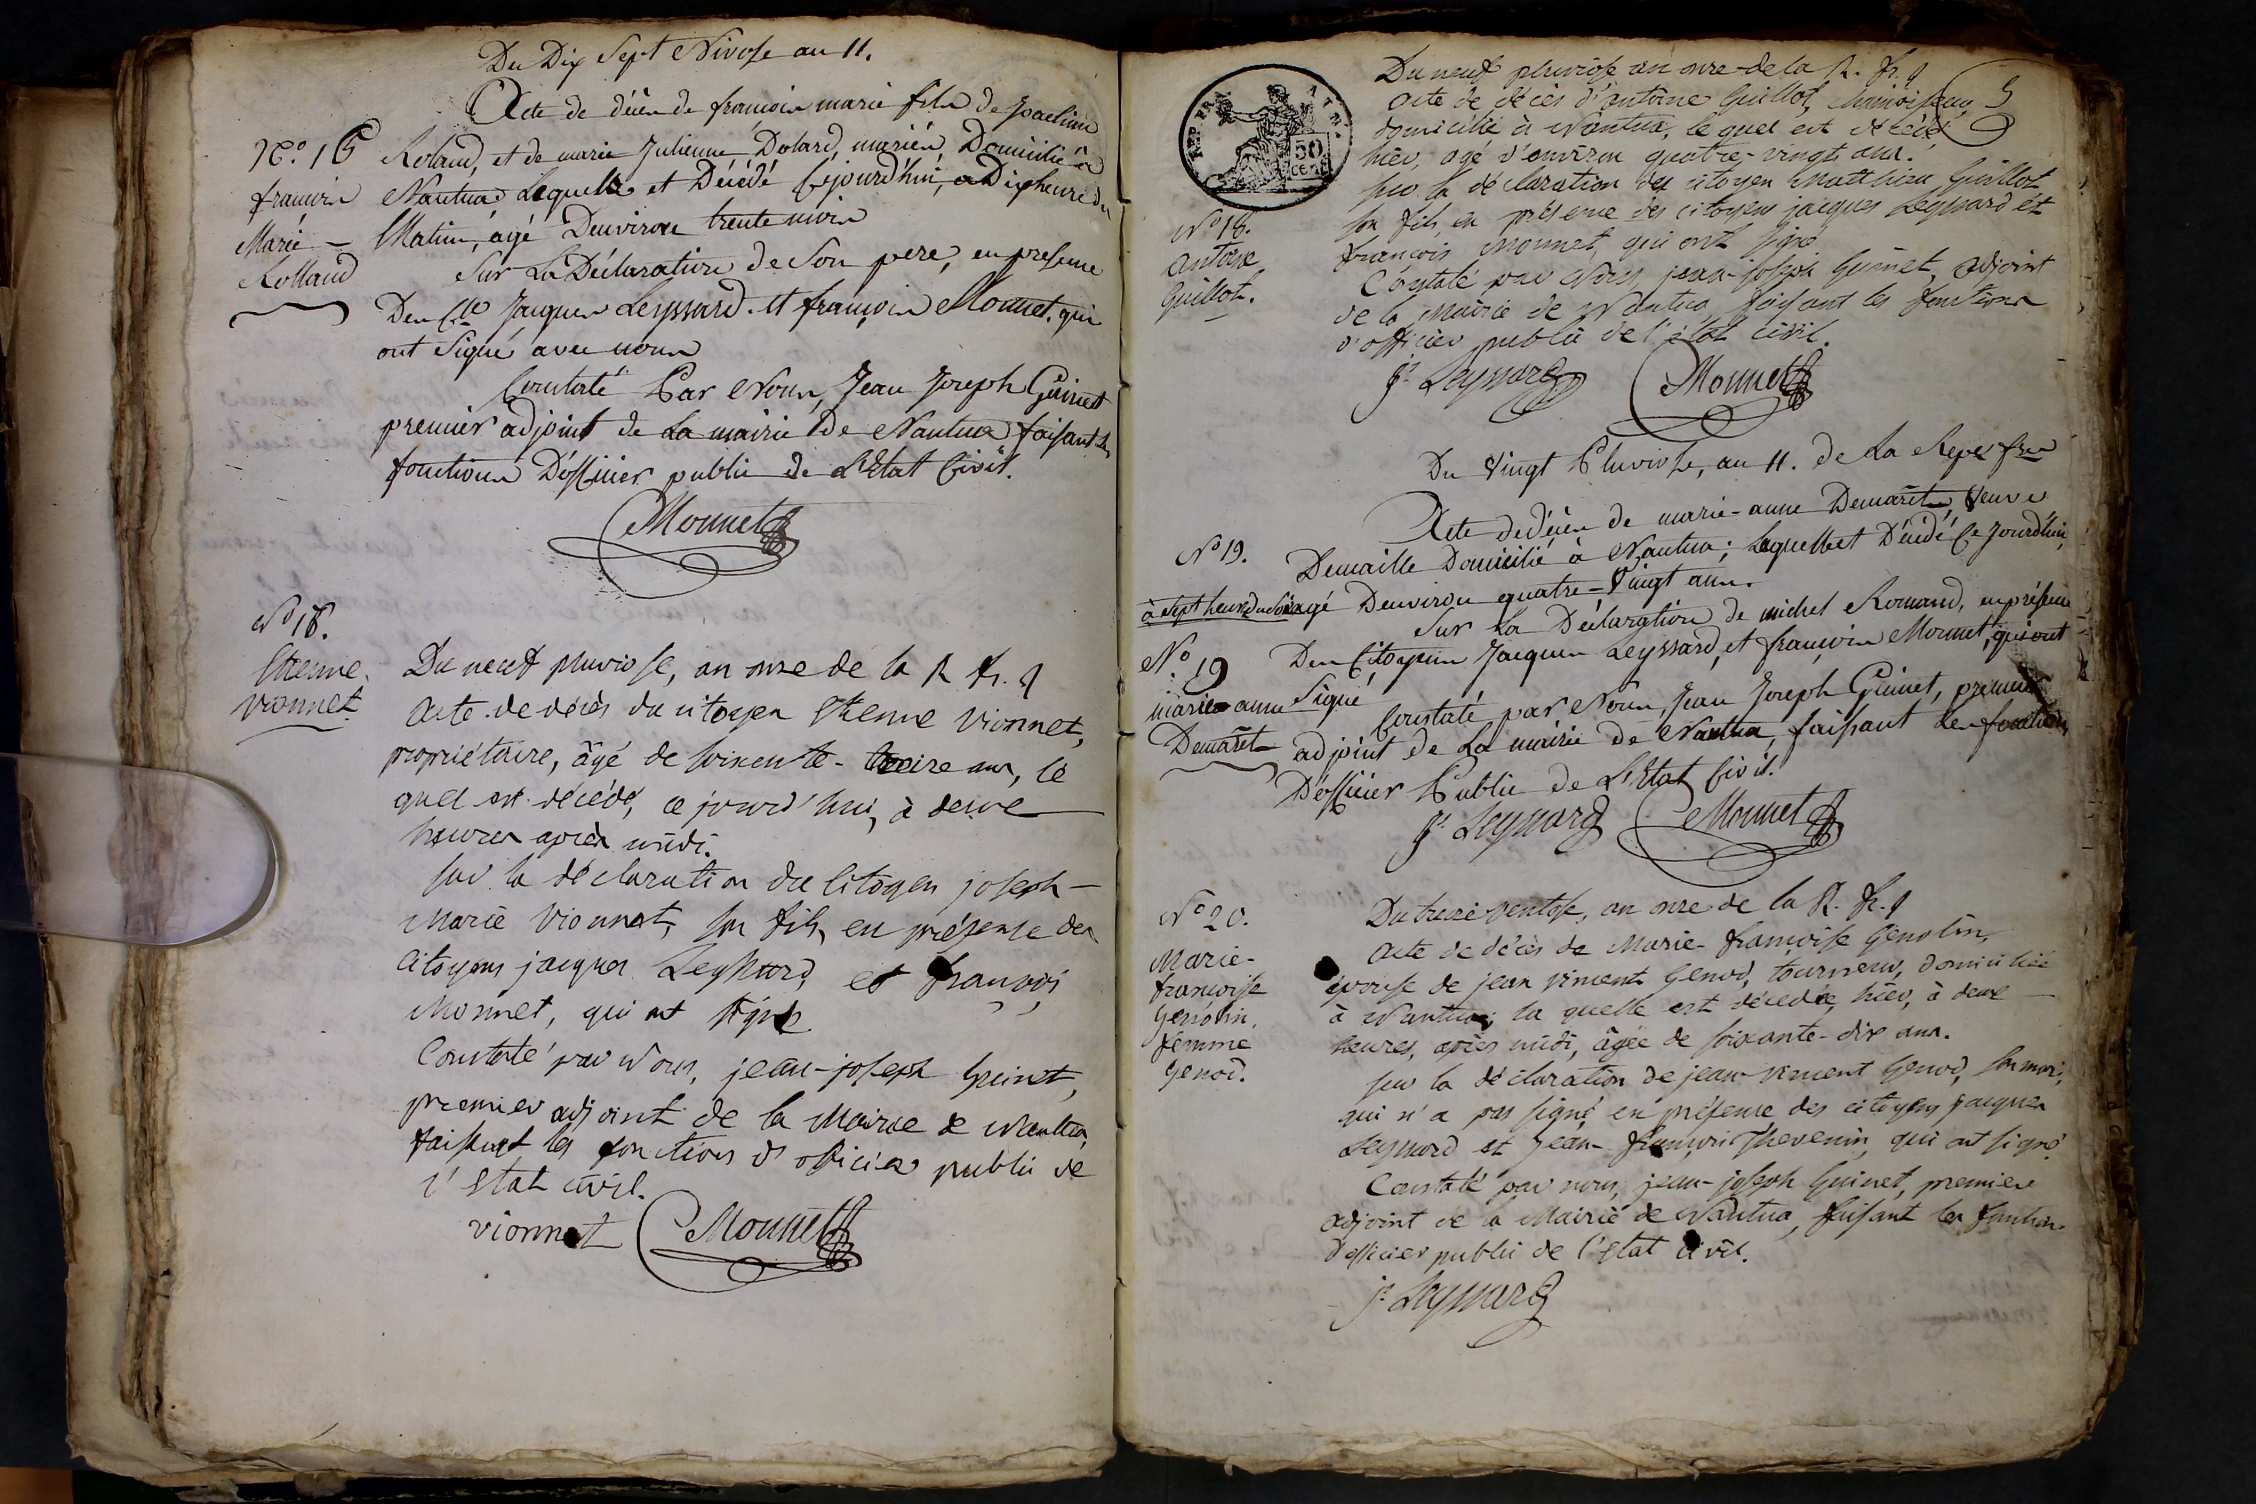 Du Dix Sept Nivose an 11.
Acte de décès de françois marie fils de Joachim
N.o 16 Roland, et de marie Julienne Dolard, mariés, Domicilié à
françois Nantua Lequelle et Décédé Cejourd'hui, a Dix heure du
Marie Matin, agé Denviron trente mois
Rolland Sur La Déclaration de Son pere, en presence
Des C.te Jacques Leyssard et françois Monnet, qui
ont Signé avec nous
Constaté Par Nous, Jean Joseph Guinet
premier adjoint de La mairie De Nantua faisant les
fonctions D'officier public de L'Etat Civil.
Monnet
N.o 18.
Etienne
Vionnet
Du neuf pluviose, an onze de la R. fr. 
acte de décès du citoyen Etienne Vionnet,
propriétaire, âgé de soixente-treize ans, le
quel est décédé, ce jourd'hui, à deux
heures après midi.
sur la déclaration du Citoyen joseph-
Marie Vionnet, son fils, en présence des
Citoyens jacques Leyssard, et françois
Monnet, qui ont signé
Constaté par Nous, jean-joseph Guinet,
premier adjoint de la Mairie de Nantua,
faisant les fonctions d'officier public de
l'Etat civil.
vionnet Monnet
Du neuf pluviose an onze de la R. fr. 
5
Acte de décès d'antoine Guillot,
domicilié à Nantua, le quel est décédé
hier, agé d'environ quatre-vingts ans.
REP. FRA.
50
cent
sur la déclaration du citoyen Matthieu Guillot
son fils, en présence des citoyens jacques Leyssard et
françois Monnet, qui ont signé
N.o 18.
antoine
Guillot.
Constaté par Nous, jean-joseph Guinet, adjoint
de la Mairie de Nantua faisant les fonctions
d'officier public de l'état civil.
j.s Leyssard Monnet
Du Vingt Pluviose, an 11. de La Repe fse
Acte de décès de marie-anne Demaret, Veuve
N.o 19. Demaille Domicilié à Nantua; Laquelle et Décédé Ce Jourd'hui,
à sept heures du Soir agé Denviron quatre-Vingt ans.
Sur La Déclaration de michel Romand, en présence
N.o 19 Des Citoyens Jacques Leyssard, et françois Monnet, qui ont
marie anne Signé
Constaté par Nous, Jean Joseph Guinet, premier
Demaret adjoint de La mairie de Nantua, faisant les fonctions
D'officier Public de L'Etat Civil.
j.s Leyssard Monnet
N.o 20.
Marie-
françoise
Genolin.
femme
Genod.
Du treize ventose, an onze de la R. fr. 
Acte de décès de Marie-françoise Genolin,
épouse de jean vincent Genod, tourneur, domiciliée
à Nantua; la quelle est décédée, hier, à deux
heures, après midi, âgée de soixante-dix ans.
sur la déclaration de jean vincent Genod, son mari,
qui n'a pas signé, en présence des citoyens jacques
Leyssard et Jean-françois Thevenin, qui ont signé.
Constaté par nous, jean-joseph Guinet, premier
adjoint de la Mairie de Nantua, faisant les fonctions
d'officier public de l'Etat civil.
j.s Leyssard